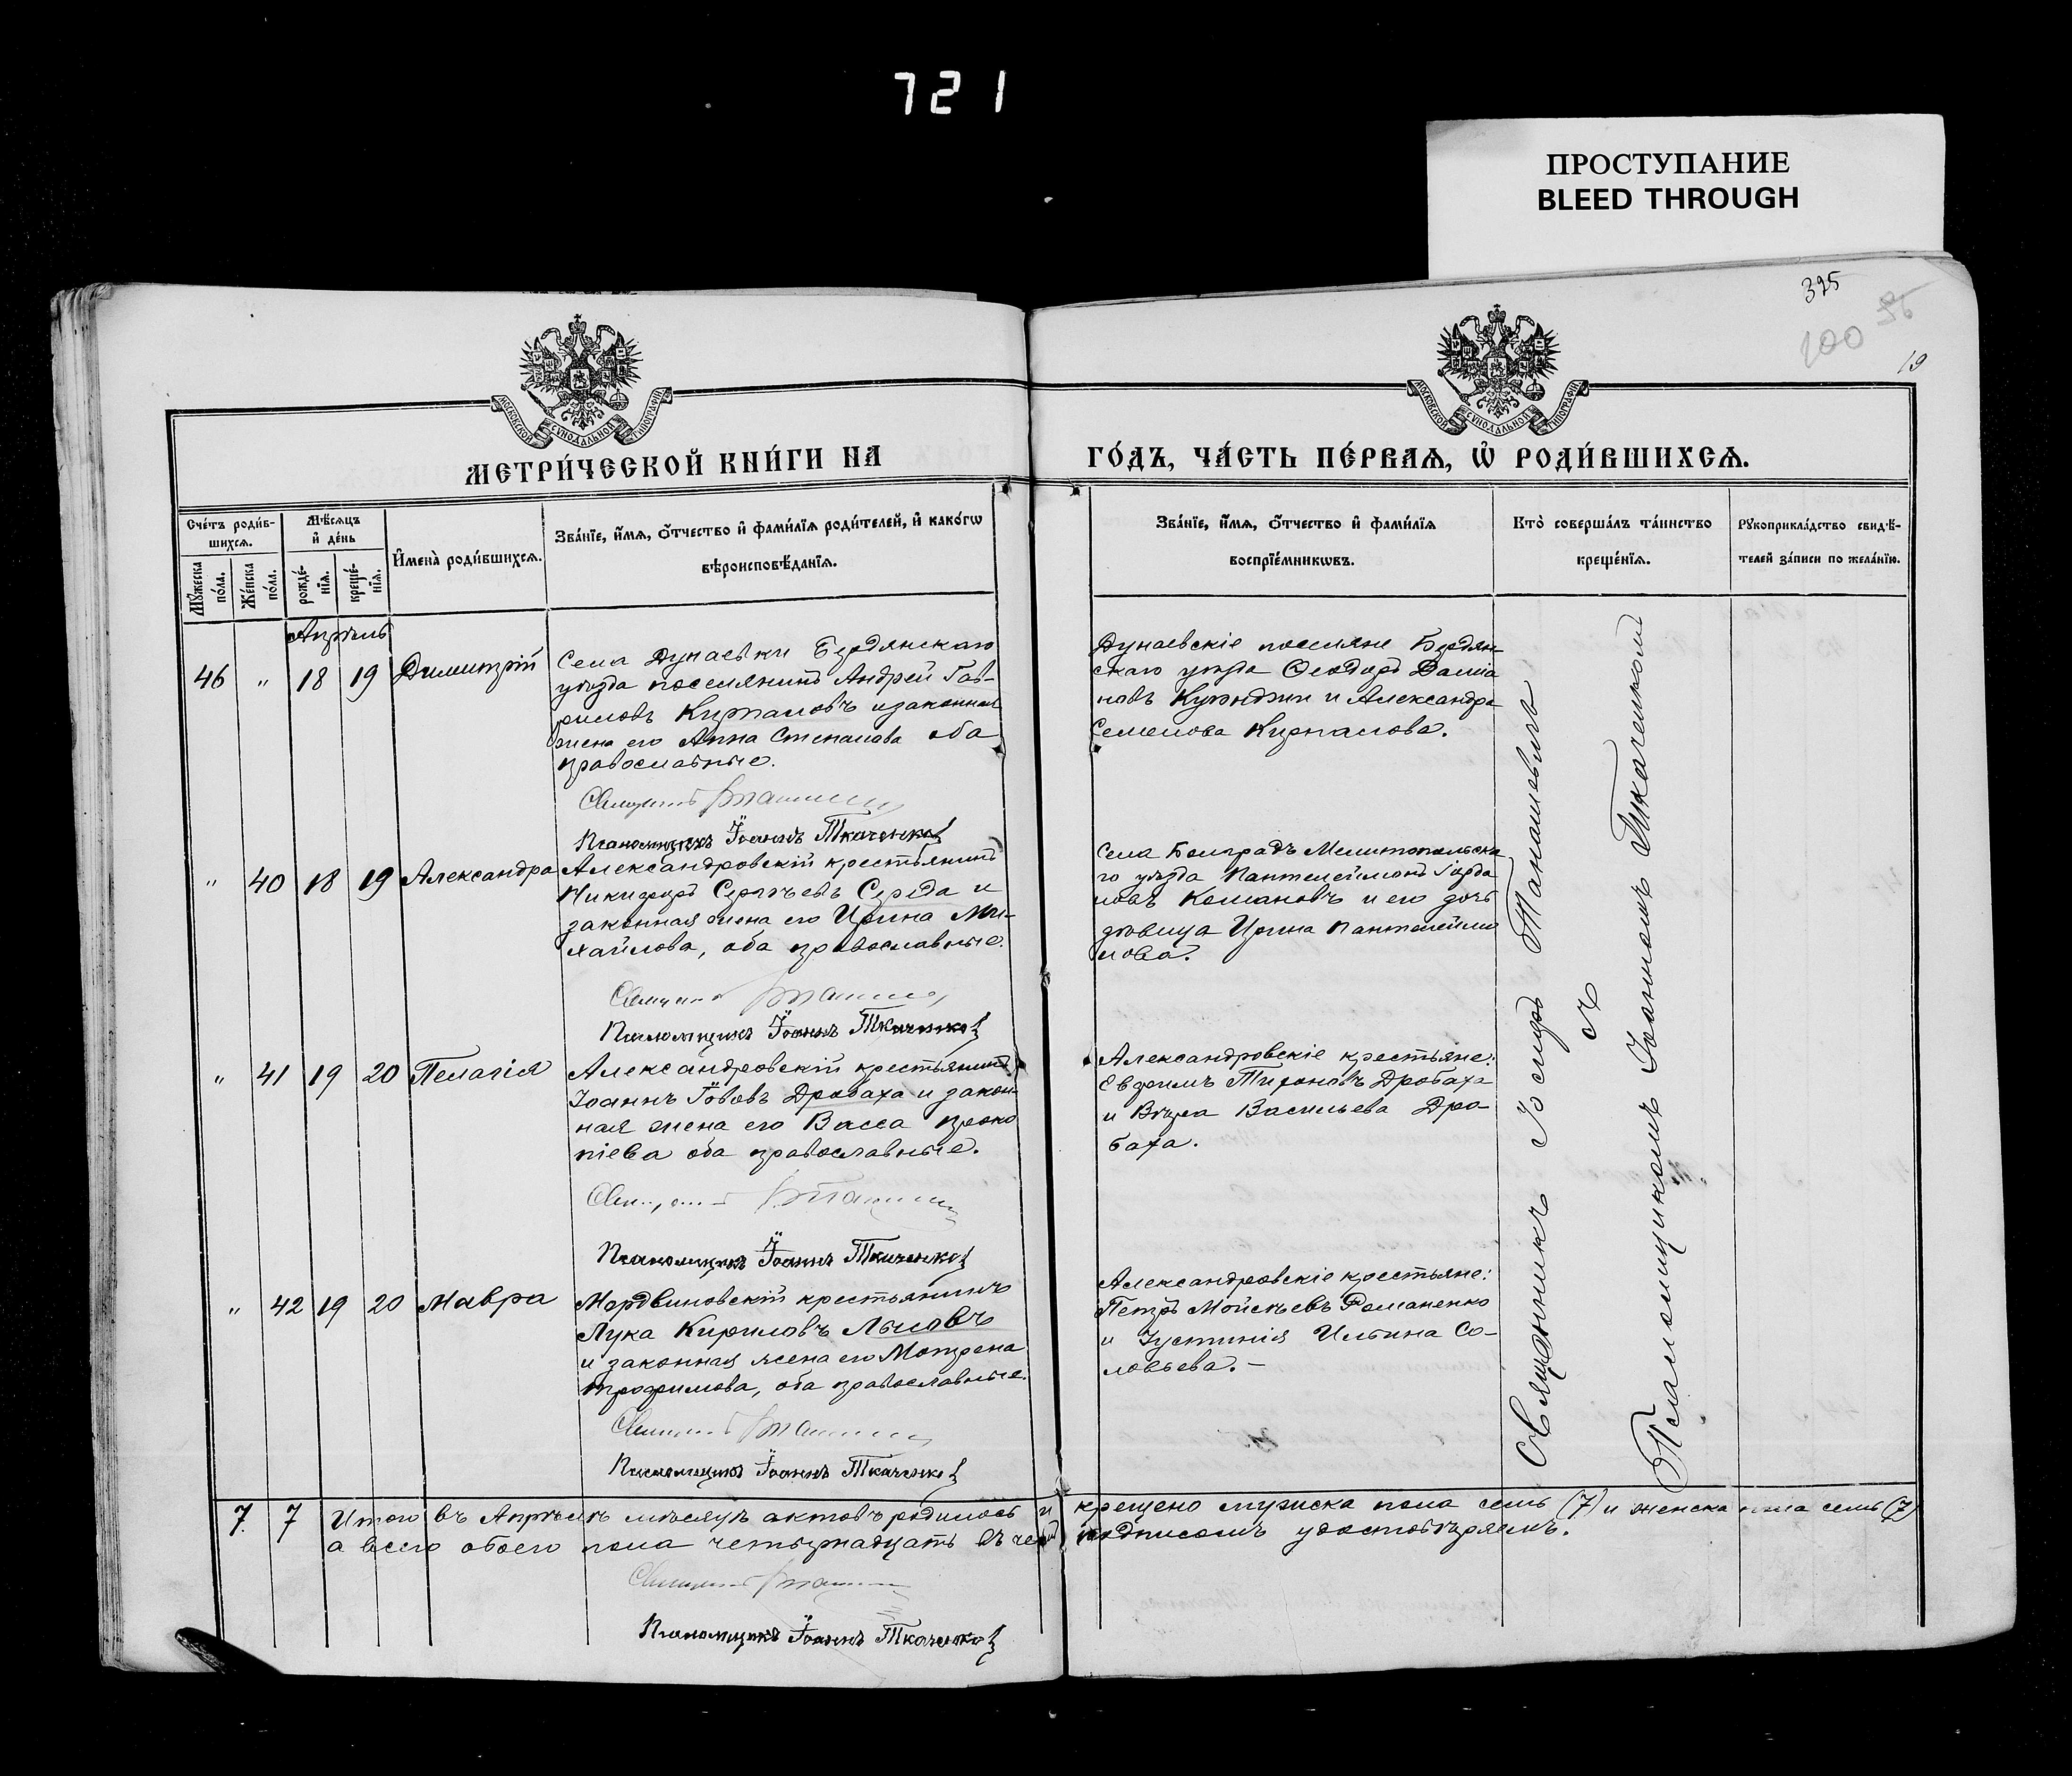 721
ПРОСТУПАНИЕ
BLEED THROUGH
395
100
19
МОСКОВСКОЙ СѴНОДАЛЬНОЙ ТИПОГРАФІИ
МОСКОВСКОЙ СѴНОДАЛЬНОЙ ТИПОГРАФІИ
МЕТРИ́ЧЕСКОЙ КНИ́ГИ НА
ГО́ДЪ, ЧА́СТЬ ПЕ́РВАѦ, Ѡ҆ РОДИ́ВШИХСѦ.
Сче́тъ роди́в-
шихсѧ.
Мꙋ́жеска по́ла.
Же́нска по́ла.
Мѣ́сѧцъ
и҆ де́нь
рожде́-
нїѧ.
креще́-
нїѧ.
И҆мена̀ роди́вшихсѧ.
Зва́нїе, и҆́мѧ, ѻ҆́тчество и҆ фами́лїѧ роди́телей, и҆ како́гѡ
вѣроисповѣ́данїѧ.
Зва́нїе, и҆́мѧ, ѻ҆́тчество и҆ фами́лїѧ
воспрїе́мникѡвъ.
Кто̀ соверша́лъ та́инство
креще́нїѧ.
Рꙋкоприкла́дство свидѣ́-
телей за́писи по жела́нїю.
Апрѣль
46 " 18 19 Димитрій
Села Дунаевки Бердянскаго
уѣзда поселянинъ Андрей Гав-
риловъ Курталовъ и законная
жена его Анна Степанова оба
православные.
Священникъ
Псаломщикъ Іоаннъ Ткаченко
Дунаевскіе поселяне Бердян-
скаго уѣзда Ѳеодоръ Даміа
новъ и Александра
Семенова Курталова.
" 40 18 19 Александра
Александровскій крестьянинъ
Никифоръ Сергѣевъ Середа и
законная жена его Ирина Ми-
хайлова, оба православные.
Священникъ
Псаломщикъ Іоаннъ Ткаченко
Села Болградъ Мелитопольска
го уѣзда Пантелеймонъ Іорда
новъ Комановъ и его дочь
дѣвица Ирина Пантелеймо
нова.
" 41 19 20 Пелагія
Александровскій крестьянинъ
Іоаннъ Іововъ Дробаха и закон-
ная жена его Васса Проко
піева оба православные.
Священникъ
Псаломщикъ Іоаннъ Ткаченко
Александровскіе крестьяне:
Евфимъ Тихоновъ Дробаха
и Вѣра Васильева Дро-
баха.
" 42 19 20 Мавра
Мордвиновскій крестьянинъ
Лука Кириловъ Лысовъ
и законная жена его Мотрена
Трофимова, оба православные.
Священникъ
Псаломщикъ Іоаннъ Ткаченко
Александровскіе крестьяне:
Петръ Мойсѣевъ Романенко
и Іустинія Ильина Со-
ловьева.-
Священникъ Іосифъ Танашевичъ
съ
Псаломщикомъ Іоанномъ Ткаченкомъ
7. 7 Итого въ Апрѣлѣ мѣсяцѣ актовъ родилось и крещено мужска пола семь (7) и женска пола семь (7)
а всего обоего пола четырнадцать въ чемъ подписомъ удостовѣряемъ.
Священникъ
Псаломщикъ Іоаннъ Ткаченко